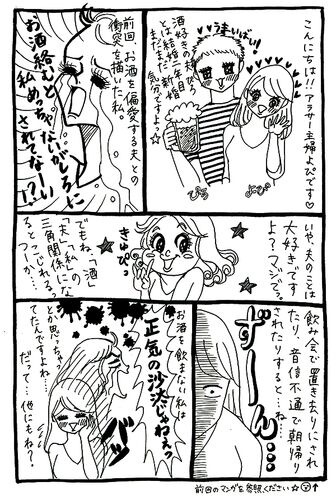 こんにちは!!アラサー主婦よぴです♡
♥♥うまいぱい!♥♥
酒好きの夫ぴろ
とは結婚二年目
まだまだ新婚
気分ですよっ☆
ぴろ
よぴ
前回、お酒を偏愛する夫との
衝突を描いた私。
お酒絡むと
私めっちゃないがしろに
されてなーい!?!
いや、夫のことは
大好きです
よ?マジでっ。
きゅぴっ
でもね、「酒」
「夫」「私」の
三角関係になる
とこじれるっ
つーか…
飲み会で置き去りにされ
たり、音信不通で朝帰り
されたりすると…ね…
ずーん…
お酒を飲まない私は
正気の沙汰じゃねぇっ
とか思っちゃっ
てたんですよね…
だって…他にもね?
前回のマンガを参照ください☆